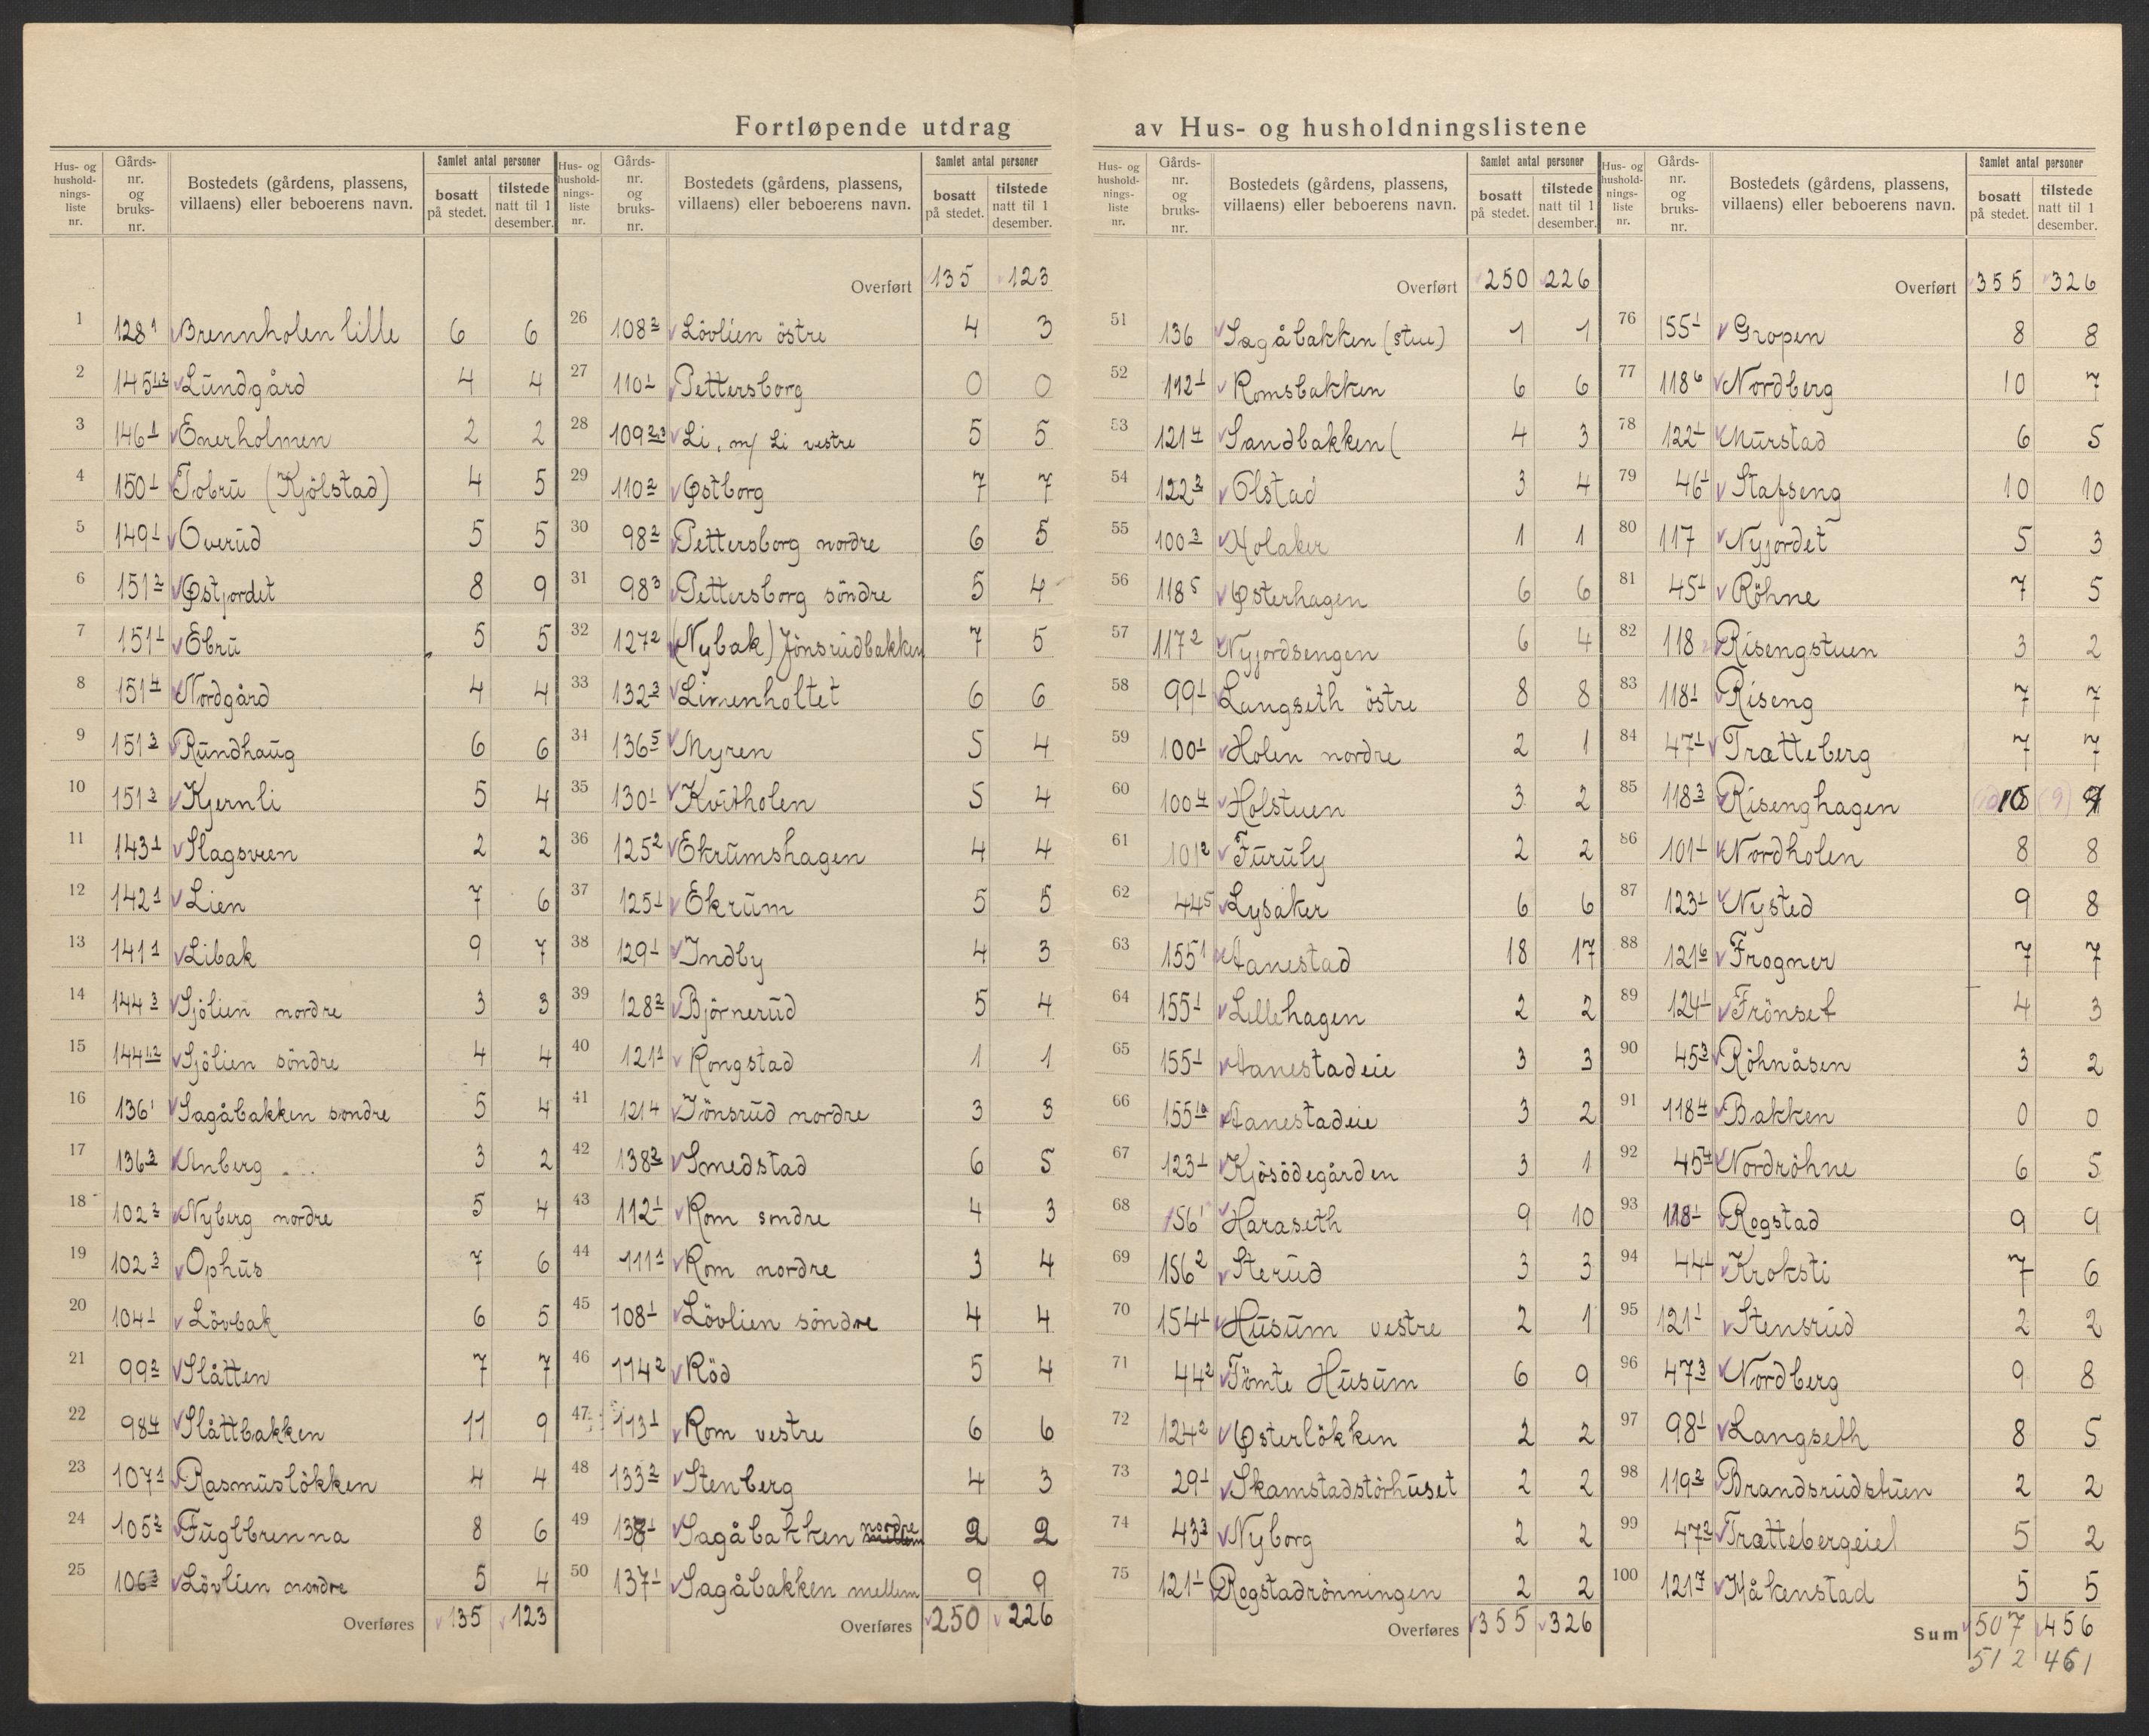 Fortløpende utdrag av Hus- og husholdningslistene
Hus- og hushold-nings-liste nr. | Gårds-nr. og bruks-nr. | Bostedets (gårdens, plassens, villaens) eller beboerens navn. | Samlet antal personer | bosatt på stedet. | tilstede natt til 1 desember.
1 128¹ Brennholen lille 6 6
2 145¹·² Lundgård 4 4
3 146¹ Enerholmen 2 2
4 150¹ Tobru (Kjölstad) 4 5
5 149¹ Overud 5 5
6 151² Østjordet 8 9
7 151¹ Ebru 5 5
8 151⁴ Nordgård 4 4
9 151³ Rundhaug 6 6
10 151³ Kjernli 5 4
11 143¹ Slagsveen 2 2
12 142¹ Lien 7 6
13 141¹ Libak 9 7
14 144³ Sjölien nordre 3 3
15 144¹·² Sjölien söndre 4 4
16 136¹ Sagåbakken søndre 5 4
17 136³ Anberg 3 2
18 102² Nyberg nordre 5 4
19 102³ Ophus 7 6
20 104¹ Lövbak 6 5
21 99² Slåtten 7 7
22 98⁴ Slåttbakken 11 9
23 107¹ Rasmuslökken 4 4
24 105² Fuglbrenna 8 6
25 106³ Lövlien nordre 5 4
Overføres 135 123
Hus- og hushold-nings-liste nr. | Gårds-nr. og bruks-nr. | Bostedets (gårdens, plassens, villaens) eller beboerens navn. | Samlet antal personer | bosatt på stedet. | tilstede natt til 1 desember.
Overført 135 123
26 108² Lövlien östre 4 3
27 110¹ Pettersborg 0 0
28 109²·³ Li, m/ Li vestre 5 5
29 110² Østborg 7 7
30 98² Pettersborg nordre 6 5
31 98³ Pettersborg söndre 5 4
32 127² (Nybak) Jönsrudbakken 7 5
33 132³ Linenholtet 6 6
34 136⁵ Myren 5 4
35 130¹ Kvitholen 5 4
36 125² Ekrumshagen 4 4
37 125¹ Ekrum 5 5
38 129¹ Indby 4 3
39 128² Björnerud 5 4
40 121¹ Rongstad 1 1
41 121⁴ Jönsrud nordre 3 3
42 138² Smedstad 6 5
43 112¹ Rom søndre 4 3
44 111¹ Rom nordre 3 4
45 108¹ Lövlien söndre 4 4
46 114² Röd 5 4
47 113¹ Rom vestre 6 6
48 133² Stenberg 4 3
49 138¹ Sagåbakken nordre 2 2
50 137¹ Sagåbakken mellem 9 9
Overføres 250 226
Hus- og hushold-nings-liste nr. | Gårds-nr. og bruks-nr. | Bostedets (gårdens, plassens, villaens) eller beboerens navn. | Samlet antal personer | bosatt på stedet. | tilstede natt til 1 desember.
Overført 250 226
51 136 Sagåbakken (stue) 1 1
52 112¹ Romsbakken 6 6
53 121⁴ Sandbakken ( 4 3
54 122³ Olstad 3 4
55 100³ Holaker 1 1
56 118⁵ Østerhagen 6 6
57 117² Nyjordsengen 6 4
58 99¹ Langseth östre 8 8
59 100¹ Holen nordre 2 1
60 100⁴ Holstuen 3 2
61 101² Furuly 2 2
62 44⁵ Lysaker 6 6
63 155¹ Aanestad 18 17
64 155¹ Lillehagen 2 2
65 155¹ Aanestadeie 3 3
66 155¹⁰ Aanestadeie 3 2
67 123¹ Kjösödegården 3 1
68 156¹ Haraseth 9 10
69 156² Sterud 3 3
70 154¹ Husum vestre 2 1
71 44² Tömte Husum 6 9
72 124² Østerlökken 2 2
73 29¹ Skamstadstörhuset 2 2
74 43³ Nyborg 2 2
75 121¹ Rogstadrönningen 2 2
Overføres 355 326
Hus- og hushold-nings-liste nr. | Gårds-nr. og bruks-nr. | Bostedets (gårdens, plassens, villaens) eller beboerens navn. | Samlet antal personer | bosatt på stedet. | tilstede natt til 1 desember.
Overført 355 326
76 155¹ Gropen 8 8
77 118⁶ Nordberg 10 7
78 122¹ Murstad 6 5
79 46¹ Stafseng 10 10
80 117 Nyjordet 5 3
81 45¹ Röhne 7 5
82 118 Risengstuen 3 2
83 118¹ Riseng 7 7
84 47¹ Trætteberg 7 7
85 118³ Risenghagen (10) 10 (9) 9
86 101¹ Nordholen 8 8
87 123¹ Nysted 9 8
88 121⁶ Frogner 7 7
89 124¹ Frönset 4 3
90 45³ Röhnåsen 3 2
91 118⁴ Bakken 0 0
92 45⁴ Nordröhne 6 5
93 118¹ Rogstad 9 9
94 44¹ Kroksti 7 6
95 121¹ Stensrud 2 2
96 47³ Nordberg 9 8
97 98¹ Langseth 8 5
98 119² Brandsrudstuen 2 2
99 47² Trættebergeiel 5 2
100 121⁷ Håkenstad 5 5
Sum 507 456
512 461